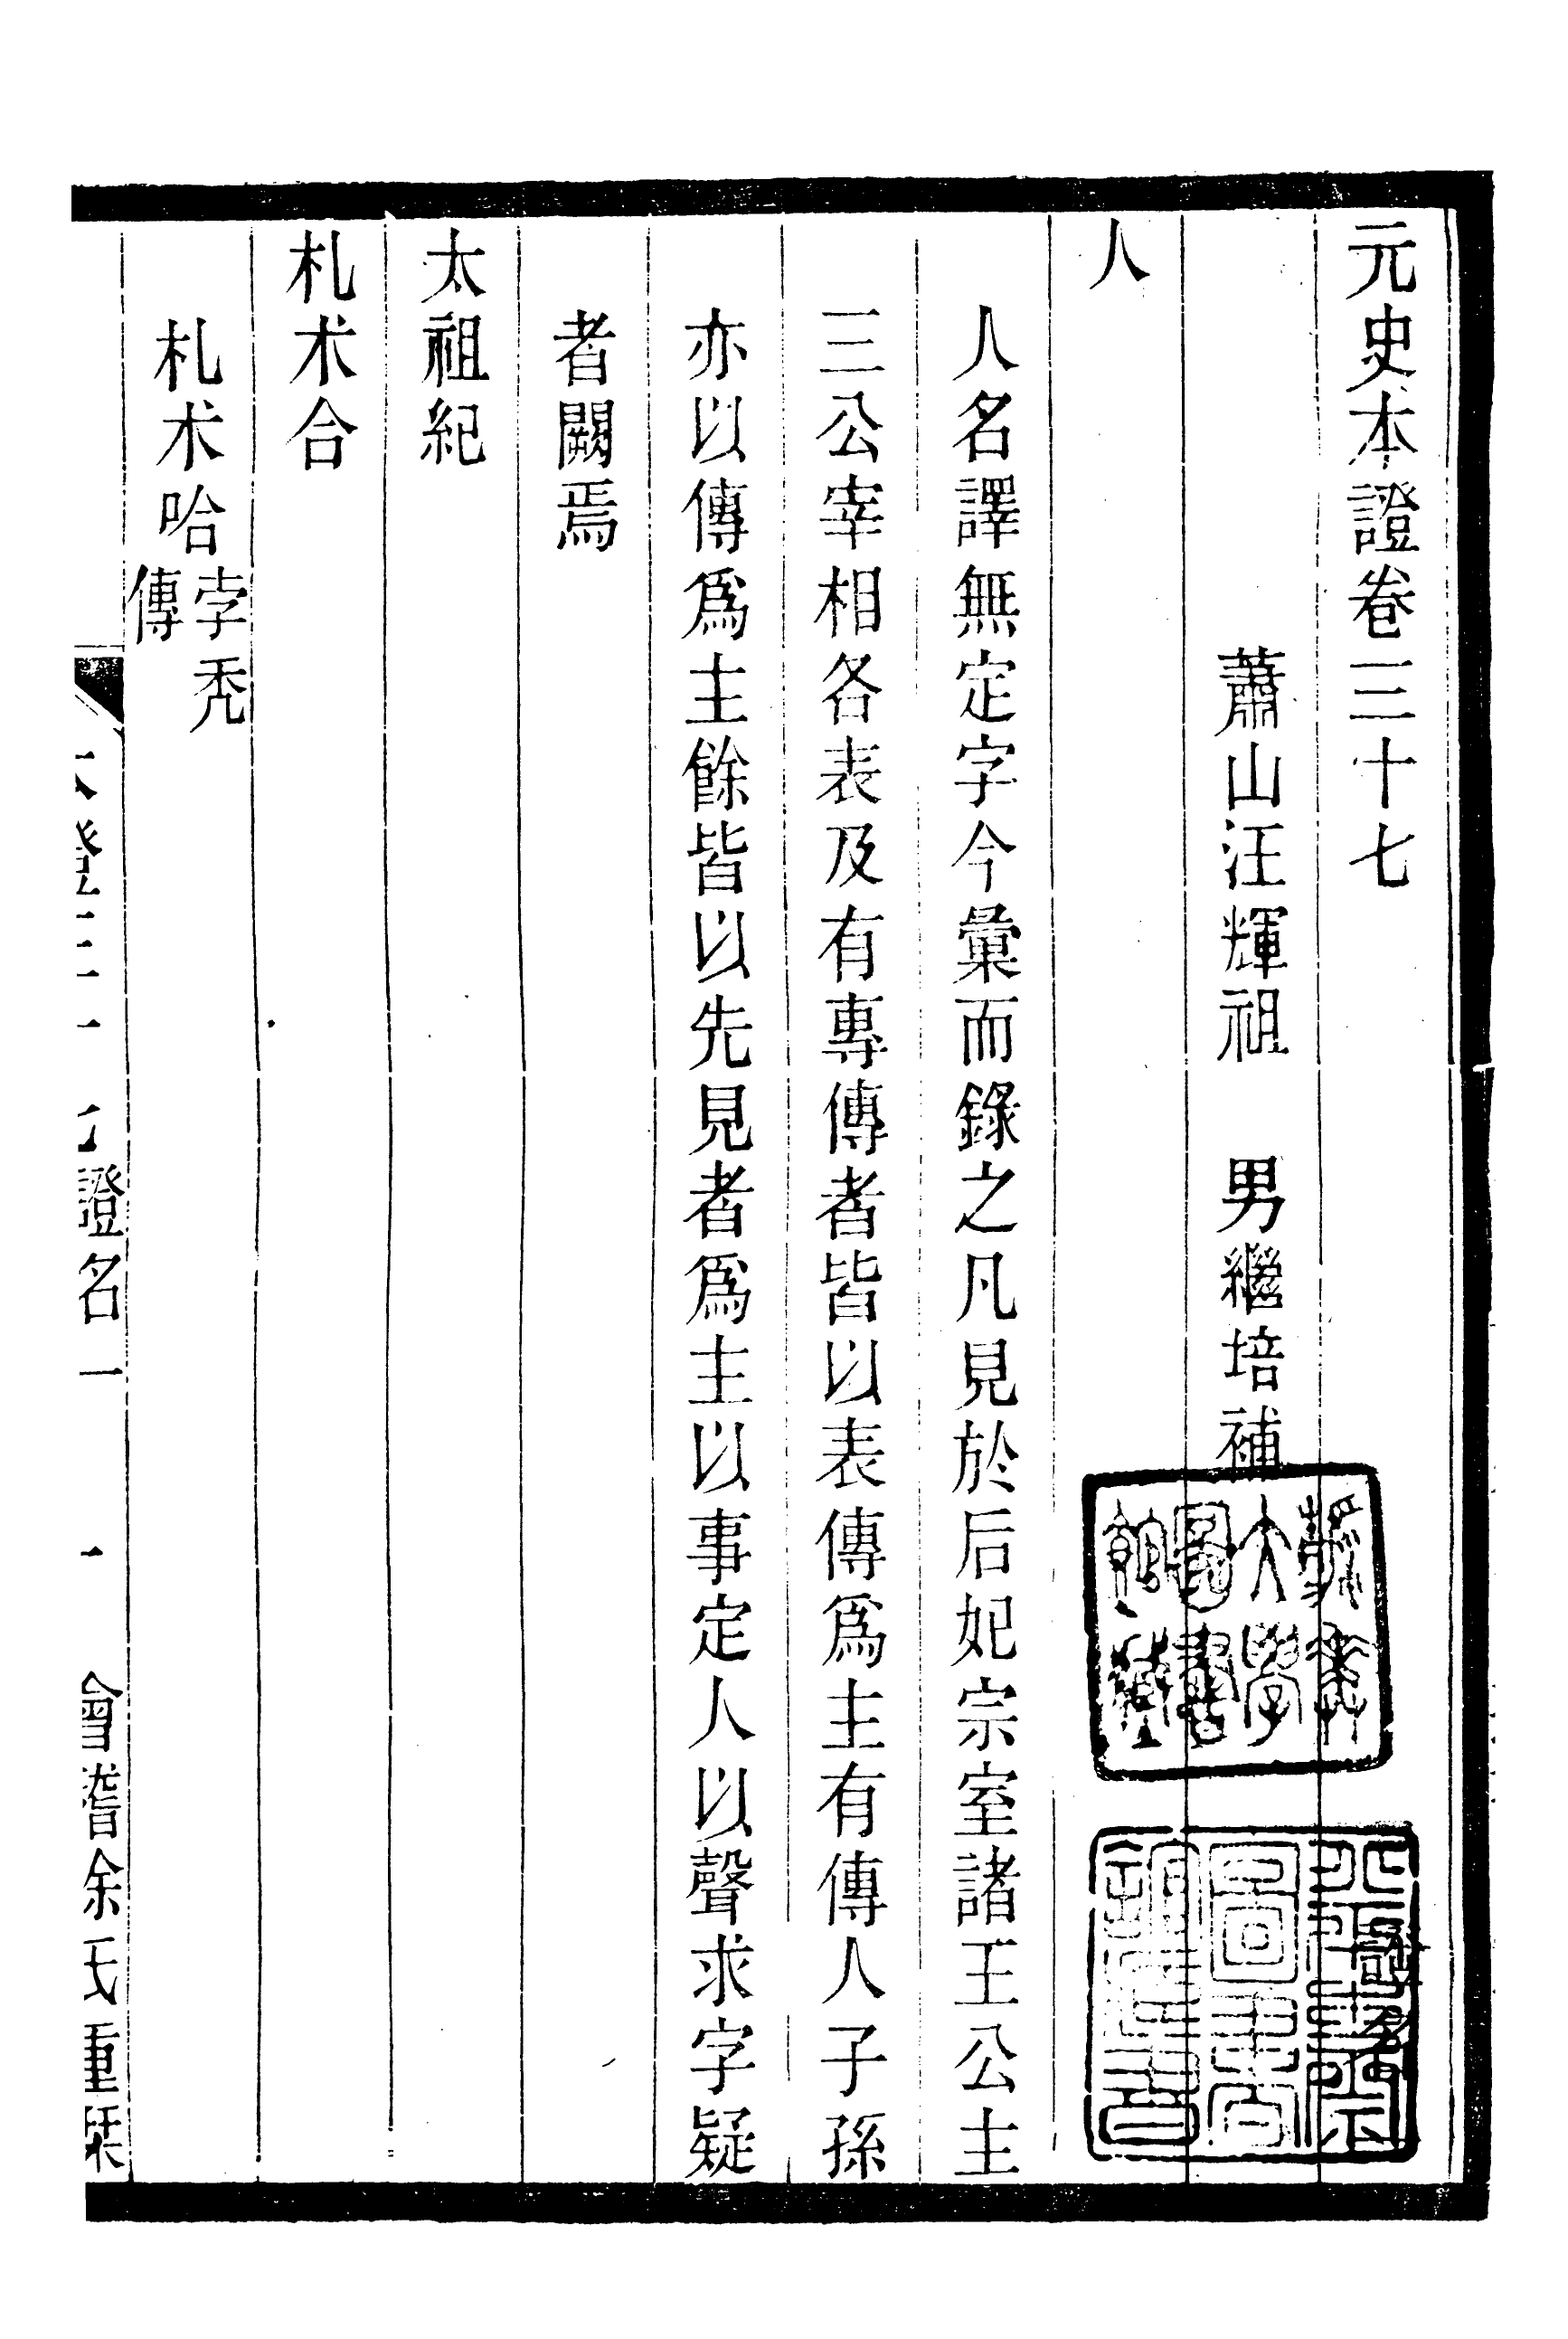 元史本證卷三十七
蕭山汪輝祖 男繼培補
人
人名譯無定字今彙而錄之凡見於后妃宗室諸王公主
三公宰相各表及有專傳者皆以表傳爲主有傳人子孫
亦以傳爲主餘皆以先見者爲主以事定人以聲求字疑
者闕焉
太祖紀
札朮合
札朮哈孛禿傳
證名一
會稽余氏重栞
燕京大學圖書館藏